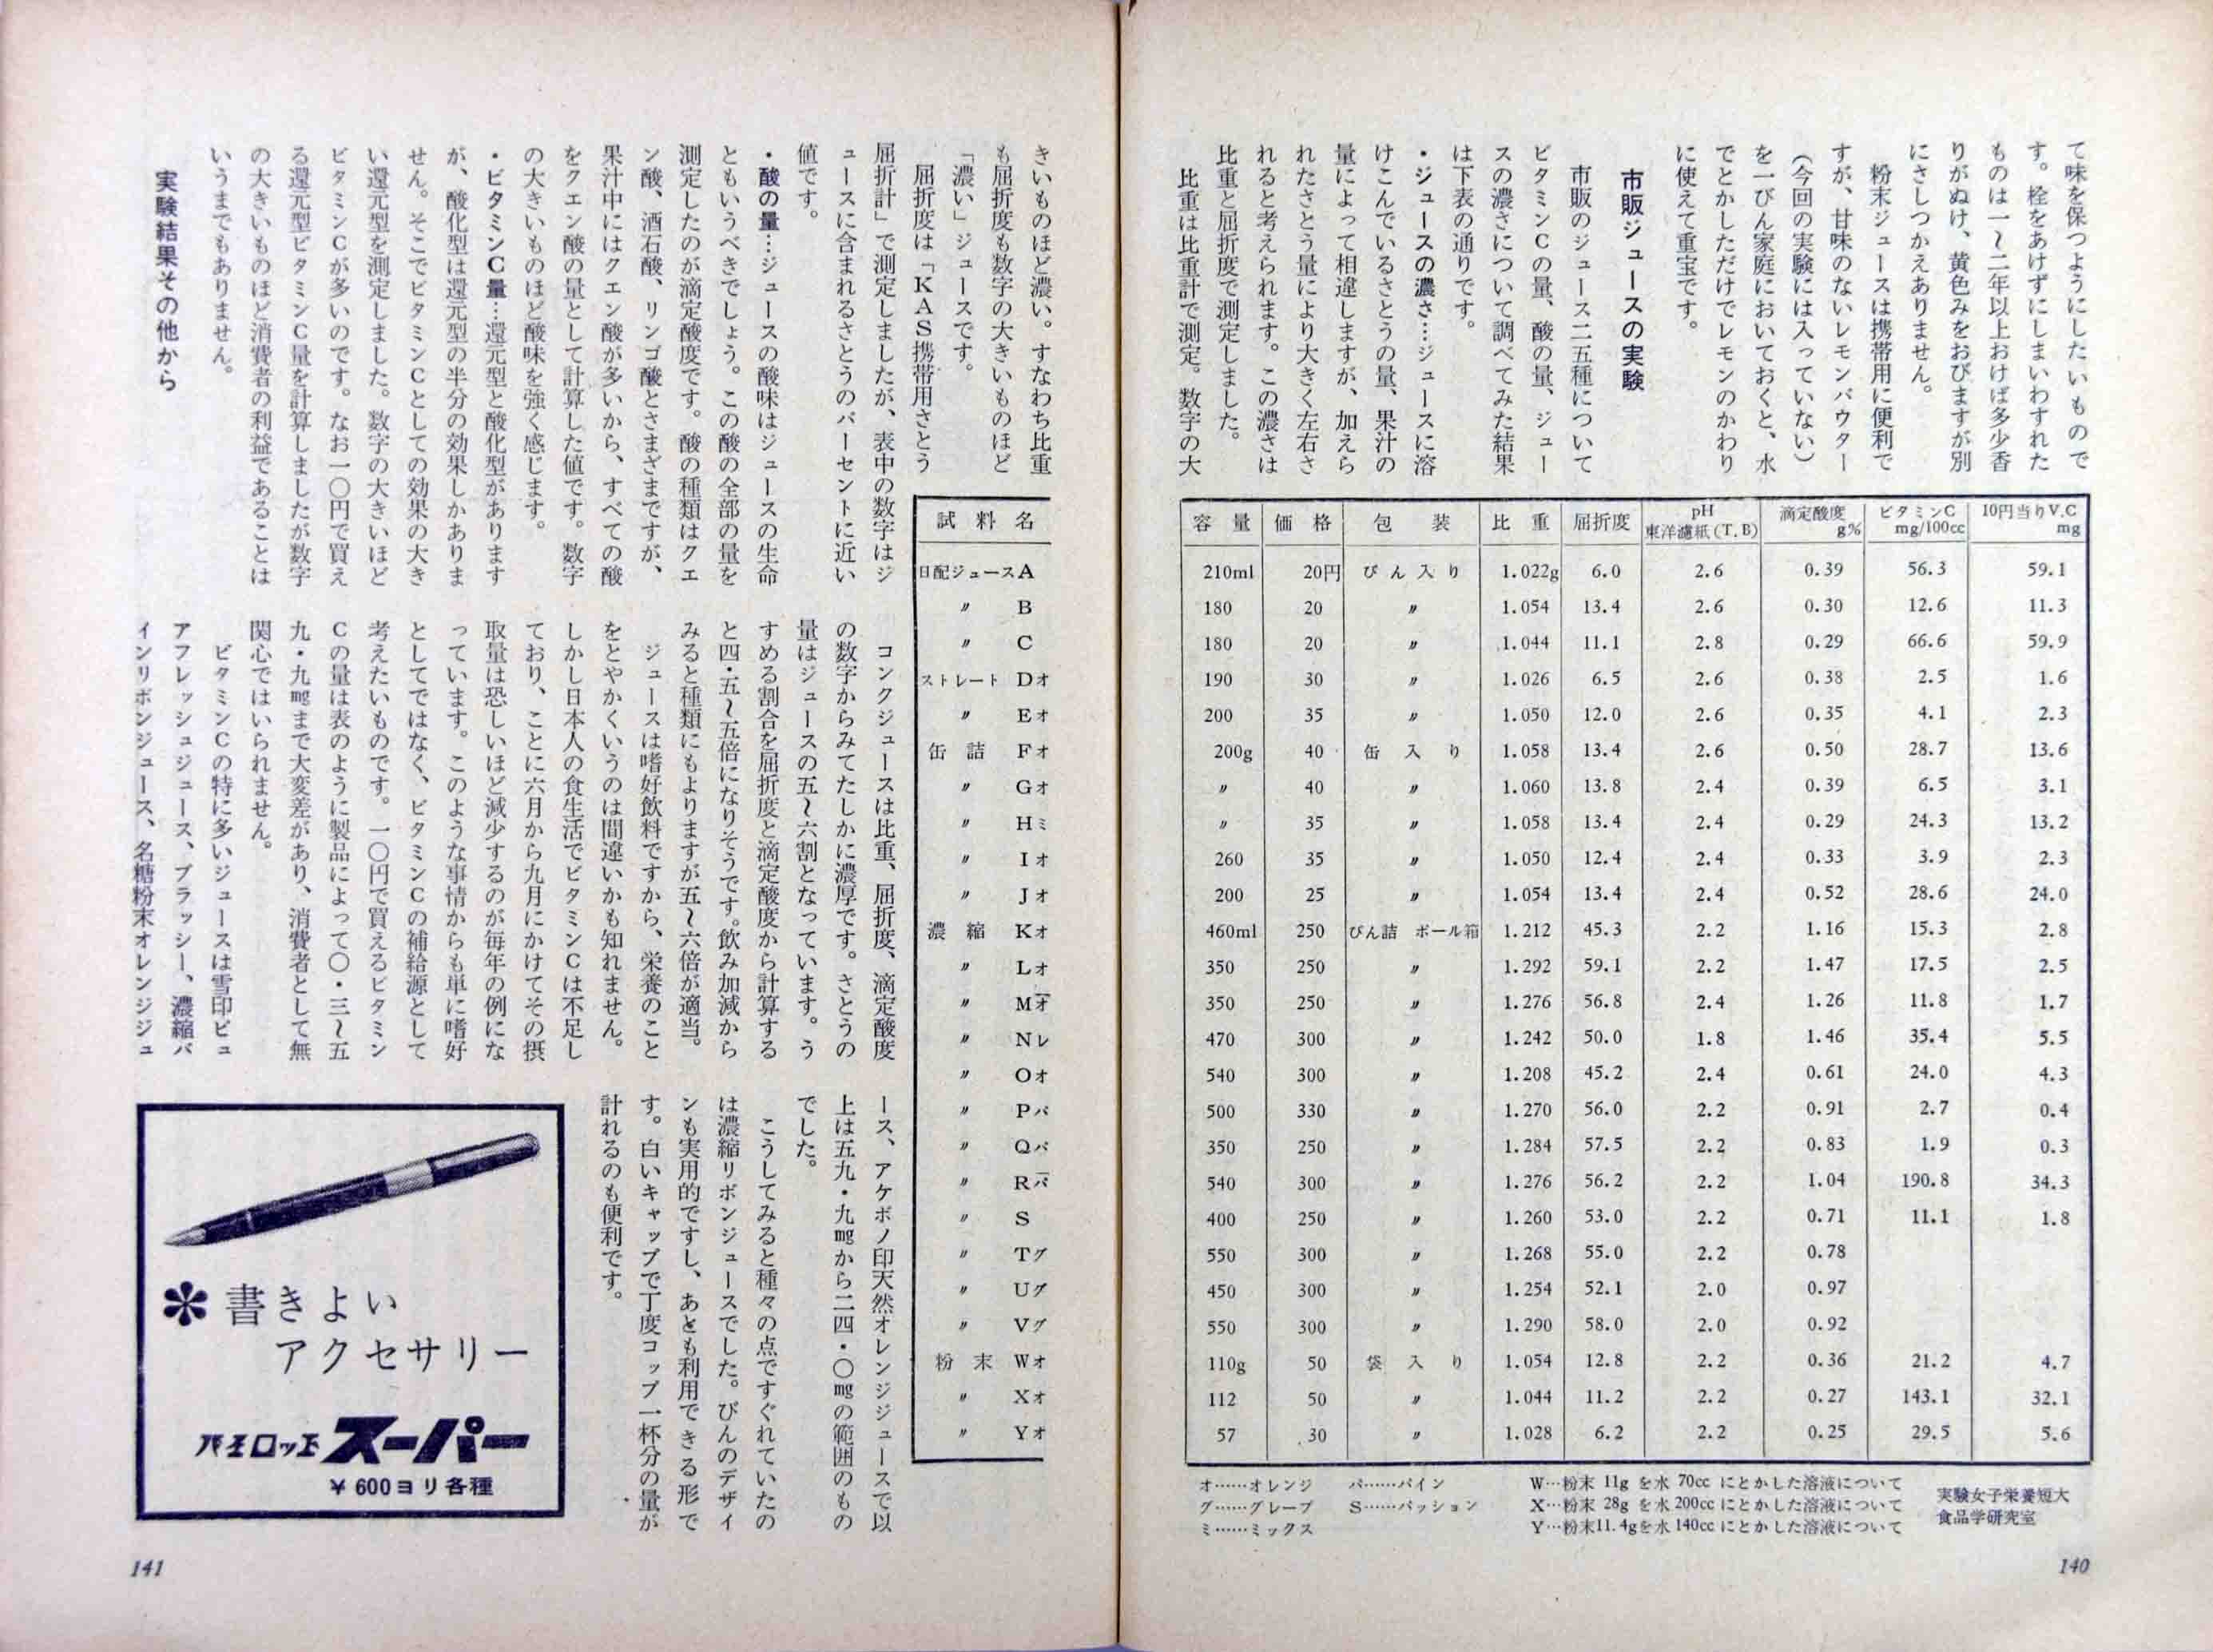 て味を保つようにしたいもので
す。栓をあけずにしまいわすれた
ものは一〜二年以上おけば多少香
りがぬけ、黄色みをおびますが別
にさしつかえありません。
粉末ジュースは携帯用に便利で
すが、甘味のないレモンパウター
(今回の実験には入っていない)
を一びん家庭においておくと、水
でとかしただけでレモンのかわり
に使えて重宝です。
市販ジュースの実験
市販のジュース二五種について
ビタミンCの量、酸の量、ジュー
スの濃さについて調べてみた結果
は下表の通りです。
・ジュースの濃さ…ジュースに溶
けこんでいるさとうの量、果汁の
量によって相違しますが、加えら
れたさとう量により大きく左右さ
れると考えられます。この濃さは
比重と屈折度で測定しました。
比重は比重計で測定。数字の大
容量 価格 包装 比重 屈折度 pH 東洋濾紙(T.B) 滴定酸度 g% ビタミンC mg/100cc 10円当りV.C mg
210ml 20円 びん入り 1.022g 6.0 2.6 0.39 56.3 59.1
180 20 〃 1.054 13.4 2.6 0.30 12.6 11.3
180 20 〃 1.044 11.1 2.8 0.29 66.6 59.9
190 30 〃 1.026 6.5 2.6 0.38 2.5 1.6
200 35 〃 1.050 12.0 2.6 0.35 4.1 2.3
200g 40 缶入り 1.058 13.4 2.6 0.50 28.7 13.6
〃 40 〃 1.060 13.8 2.4 0.39 6.5 3.1
〃 35 〃 1.058 13.4 2.4 0.29 24.3 13.2
260 35 〃 1.050 12.4 2.4 0.33 3.9 2.3
200 25 〃 1.054 13.4 2.4 0.52 28.6 24.0
460ml 250 びん詰 ボール箱 1.212 45.3 2.2 1.16 15.3 2.8
350 250 〃 1.292 59.1 2.2 1.47 17.5 2.5
350 250 〃 1.276 56.8 2.4 1.26 11.8 1.7
470 300 〃 1.242 50.0 1.8 1.46 35.4 5.5
540 300 〃 1.208 45.2 2.4 0.61 24.0 4.3
500 330 〃 1.270 56.0 2.2 0.91 2.7 0.4
350 250 〃 1.284 57.5 2.2 0.83 1.9 0.3
540 300 〃 1.276 56.2 2.2 1.04 190.8 34.3
400 250 〃 1.260 53.0 2.2 0.71 11.1 1.8
550 300 〃 1.268 55.0 2.2 0.78
450 300 〃 1.254 52.1 2.0 0.97
550 300 〃 1.290 58.0 2.0 0.92
110g 50 袋入り 1.054 12.8 2.2 0.36 21.2 4.7
112 50 〃 1.044 11.2 2.2 0.27 143.1 32.1
57 30 〃 1.028 6.2 2.2 0.25 29.5 5.6
オ……オレンジ パ……パイン
グ……グレープ S……パッション
ミ……ミックス
W…粉末 11g を水 70cc にとかした溶液について
X…粉末 28g を水 200cc にとかした溶液について
Y…粉末11.4gを水 140cc にとかした溶液について
実験女子栄養短大
食品学研究室
140
きいものほど濃い。すなわち比重
も屈折度も数字の大きいものほど
「濃い」ジュースです。
屈折度は「KAS携帯用さとう
屈折計」で測定しましたが、表中の数字はジ
ュースに含まれるさとうのパーセントに近い
値です。
・酸の量…ジュースの酸味はジュースの生命
ともいうべきでしょう。この酸の全部の量を
測定したのが滴定酸度です。酸の種類はクエ
ン酸、酒石酸、リンゴ酸とさまざまですが、
果汁中にはクエン酸が多いから、すべての酸
をクエン酸の量として計算した値です。数字
の大きいものほど酸味を強く感じます。
・ビタミンC量…還元型と酸化型があります
が、酸化型は還元型の半分の効果しかありま
せん。そこでビタミンCとしての効果の大き
い還元型を測定しました。数字の大きいほど
ビタミンCが多いのです。なお一〇円で買え
る還元型ビタミンC量を計算しましたが数字
の大きいものほど消費者の利益であることは
いうまでもありません。
実験結果その他から
試料名
日配ジュースA
〃 B
〃 C
ストレート Dオ
〃 Eオ
缶詰 Fオ
〃 Gオ
〃 Hミ
〃 Iオ
〃 Jオ
濃縮 Kオ
〃 Lオ
〃 Mオ
〃 Nレ
〃 Oオ
〃 Pパ
〃 Qパ
〃 Rパ
〃 S
〃 Tグ
〃 Uグ
〃 Vグ
粉末 Wオ
〃 Xオ
〃 Yオ
コンクジュースは比重、屈折度、滴定酸度
の数字からみてたしかに濃厚です。さとうの
量はジュースの五〜六割となっています。う
すめる割合を屈折度と滴定酸度から計算する
と四・五〜五倍になりそうです。飲み加減から
みると種類にもよりますが五〜六倍が適当。
ジュースは嗜好飲料ですから、栄養のこと
をとやかくいうのは間違いかも知れません。
しかし日本人の食生活でビタミンCは不足し
ており、ことに六月から九月にかけてその摂
取量は恐しいほど減少するのが毎年の例にな
っています。このような事情からも単に嗜好
としてではなく、ビタミンCの補給源として
考えたいものです。一〇円で買えるビタミン
Cの量は表のように製品によって〇・三〜五
九・九mgまで大変差があり、消費者として無
関心ではいられません。
ビタミンCの特に多いジュースは雪印ピュ
アフレッシュジュース、プラッシー、濃縮パ
インリボンジュース、名糖粉末オレンジジュ
ース、アケボノ印天然オレンジジュースで以
上は五九・九mgから二四・〇mgの範囲のもの
でした。
こうしてみると種々の点ですぐれていたの
は濃縮リボンジュースでした。びんのデザイ
ンも実用的ですし、あとも利用できる形で
す。白いキャップで丁度コップ一杯分の量が
計れるのも便利です。
＊書きよい
アクセサリー
パイロット スーパー
￥600ヨリ各種
141